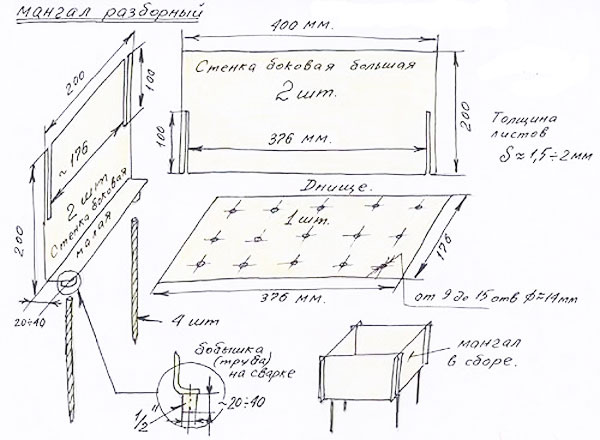 мангал разборный
400 мм.
Стенка боковая большая
2 шт.
200
100
376 мм.
Толщина
листов
S ≈ 1,5÷2мм
200
100
~ 176
2 шт
Стенка боковая
малая
200
20÷40
4 шт
Днище.
1 шт.
176
376 мм.
от 9 до 15 отв ф≈14мм
бобышка
(труба)
на сварке
1/2"
~20÷40
мангал
в сборе.